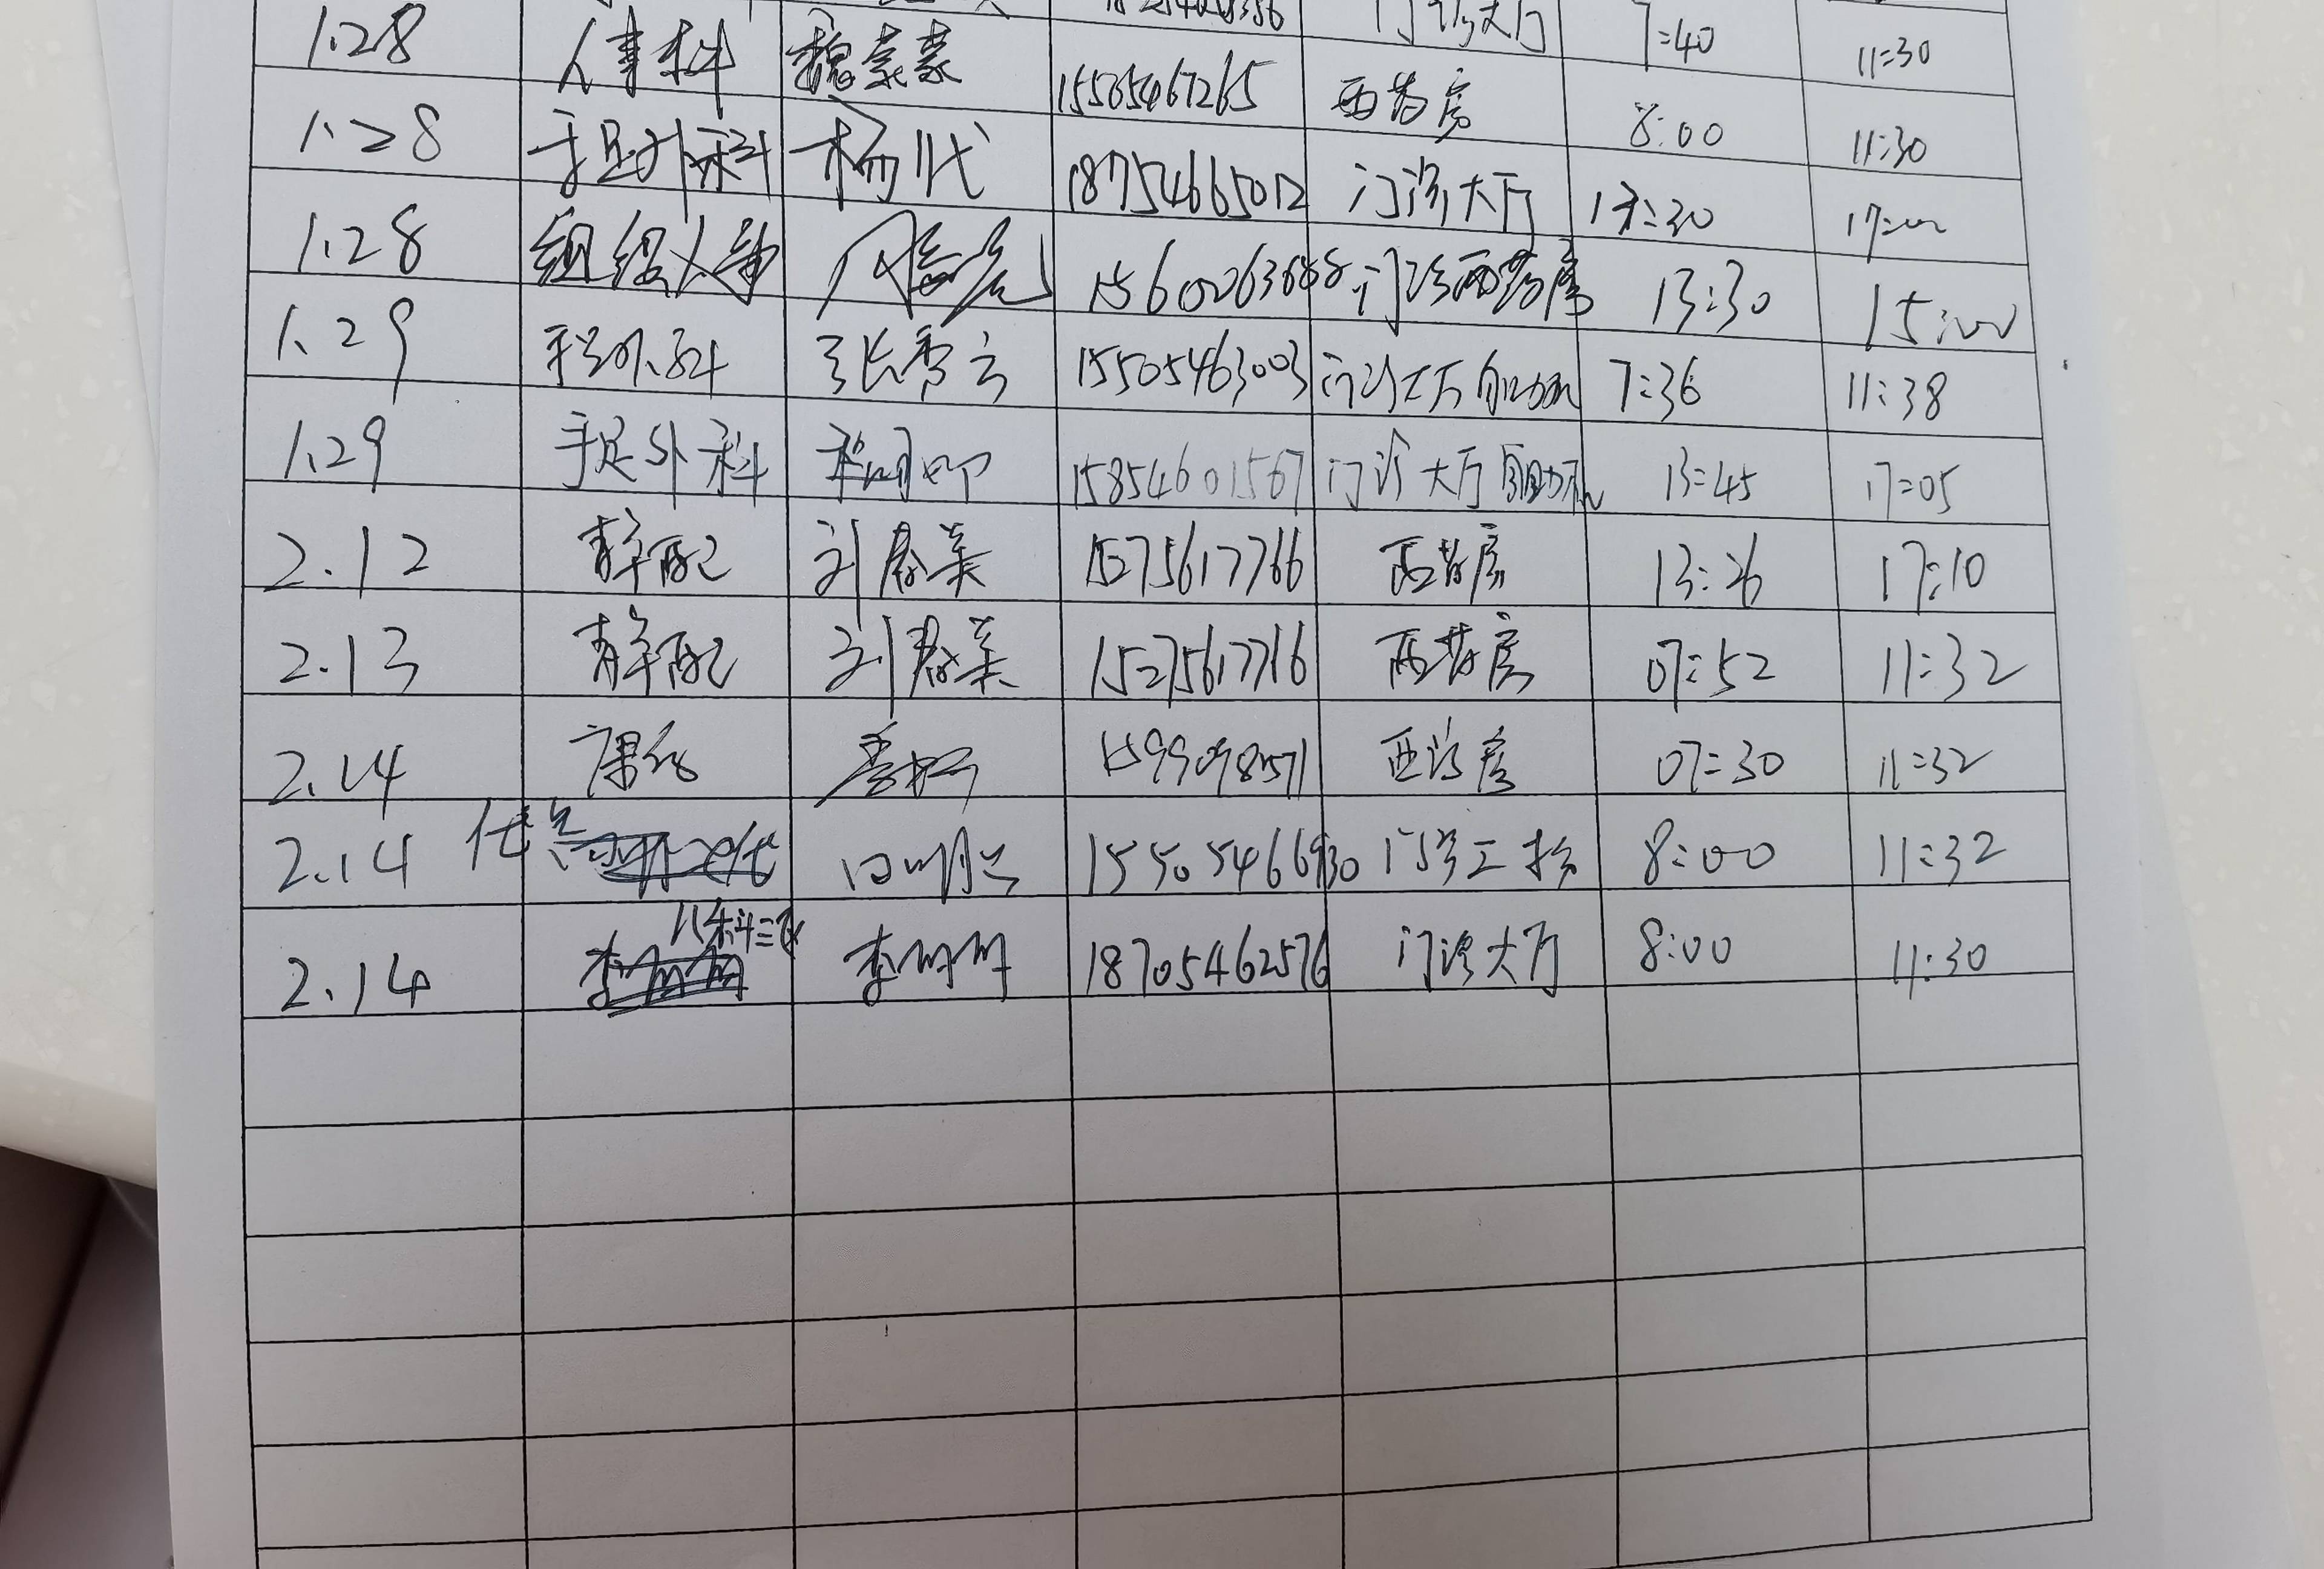 门诊大厅 7:40 11:30
1.28 人事科 魏蒙蒙 15505467265 西药房 8:00 11:30
1.28 手足外科 杨 18754665012 门诊大厅 13:30 17:00
1.28 组织人事 15600263688 门诊西药房 13:30 15:00
1.29 手足外科 张秀云 15505463003 门诊大厅自助机 7:36 11:38
1.29 手足外科 15854601567 门诊大厅自助机 13:45 17:05
2.12 静配 刘春美 15275617766 西药房 13:26 17:10
2.13 静配 刘春美 15275617766 西药房 07:52 11:32
2.14 康复 西药房 07:30 11:32
2.14 15505466930 门诊 8:00 11:32
儿科三
2.14 李丹丹 18705462576 门诊大厅 8:00 11:30